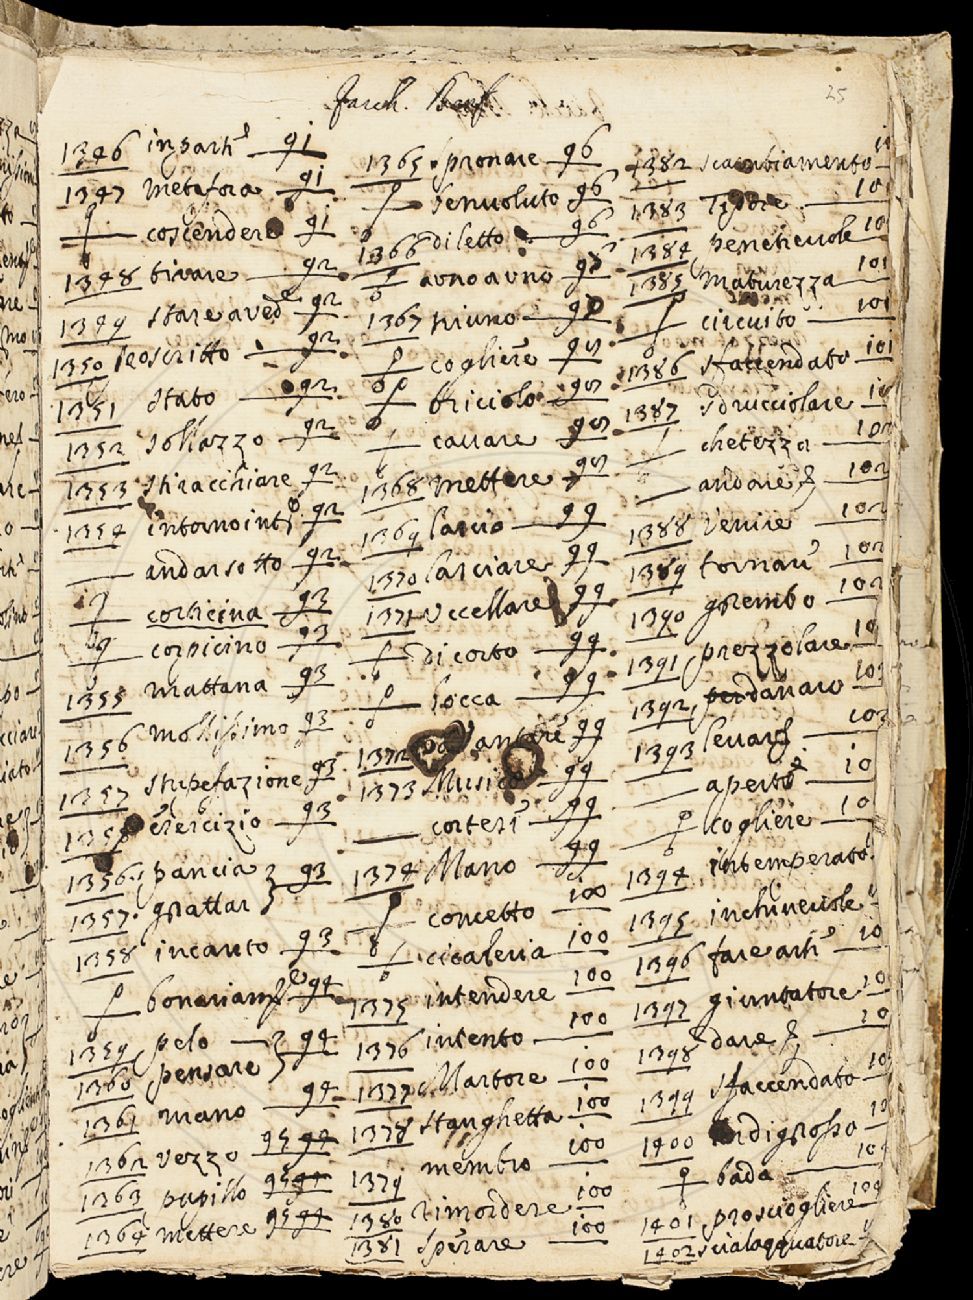 25
1346 insarh.e 91
1347 metafora 91
coscendere 91
1348 tirare 92
1349 stare aved.e 92
1350 soscritto 92
1351 stato 92
1352 sollazzo 92
1353 stiracchiare 92
1354 intornoint.o 92
andarsotto 92
corticina 93
corpicino 93
1355 mattana 93
1356 mollissimo 93
1357 stupefazione 93
1358 esercizio 93
1356 pancia 93
1357 grattar
1358 incauto 93
94
1359 pelo 94
1360 pensare
1361 mano 94
1362 vezzo 95 94
1363 pupillo 95 94
1364 mettere 95 94
1365 spronare 96
benvoluto 96
1366 diletto 96
aunoauno
1367 niuno
cogliere
briciolo
cavare
1368 mettere
1369 lascio 99
1370 lasciare 99
1371 uccellare 99
dicorto 99
locca 99
1372 99
1373 Musico 99
cortesi 99
1374 Mano 99
concetto 100
cicaleria 100
1375 intendere 100
1376 intento 100
1377 Martore 100
1378 stanghetta 100
1379 membro 100
1380 rimordere 100
1381 sperare 100
1382 scambiamento
1383 101
1384 penetrevole 10
1385 maturezza 101
circuito 101
1386 sfaccendato 101
1387 sdrucciolare 10
chetezza 102
andare 102
1388 venire 102
1389 tornar 102
1390 grembo 102
1391 prezzolare 10
1392 danaio 10
1393 levar 103
aperto 10
cogliere 10
1394 intemperato
1395 inchinevole
1396 fare arh.e 10
1397 giuntatore 10
1398 dare 10
1399 sfaccendato 10
1400 indigrosso 10
bada 104
1401 prosciogliere 104
1402 scialacquatore